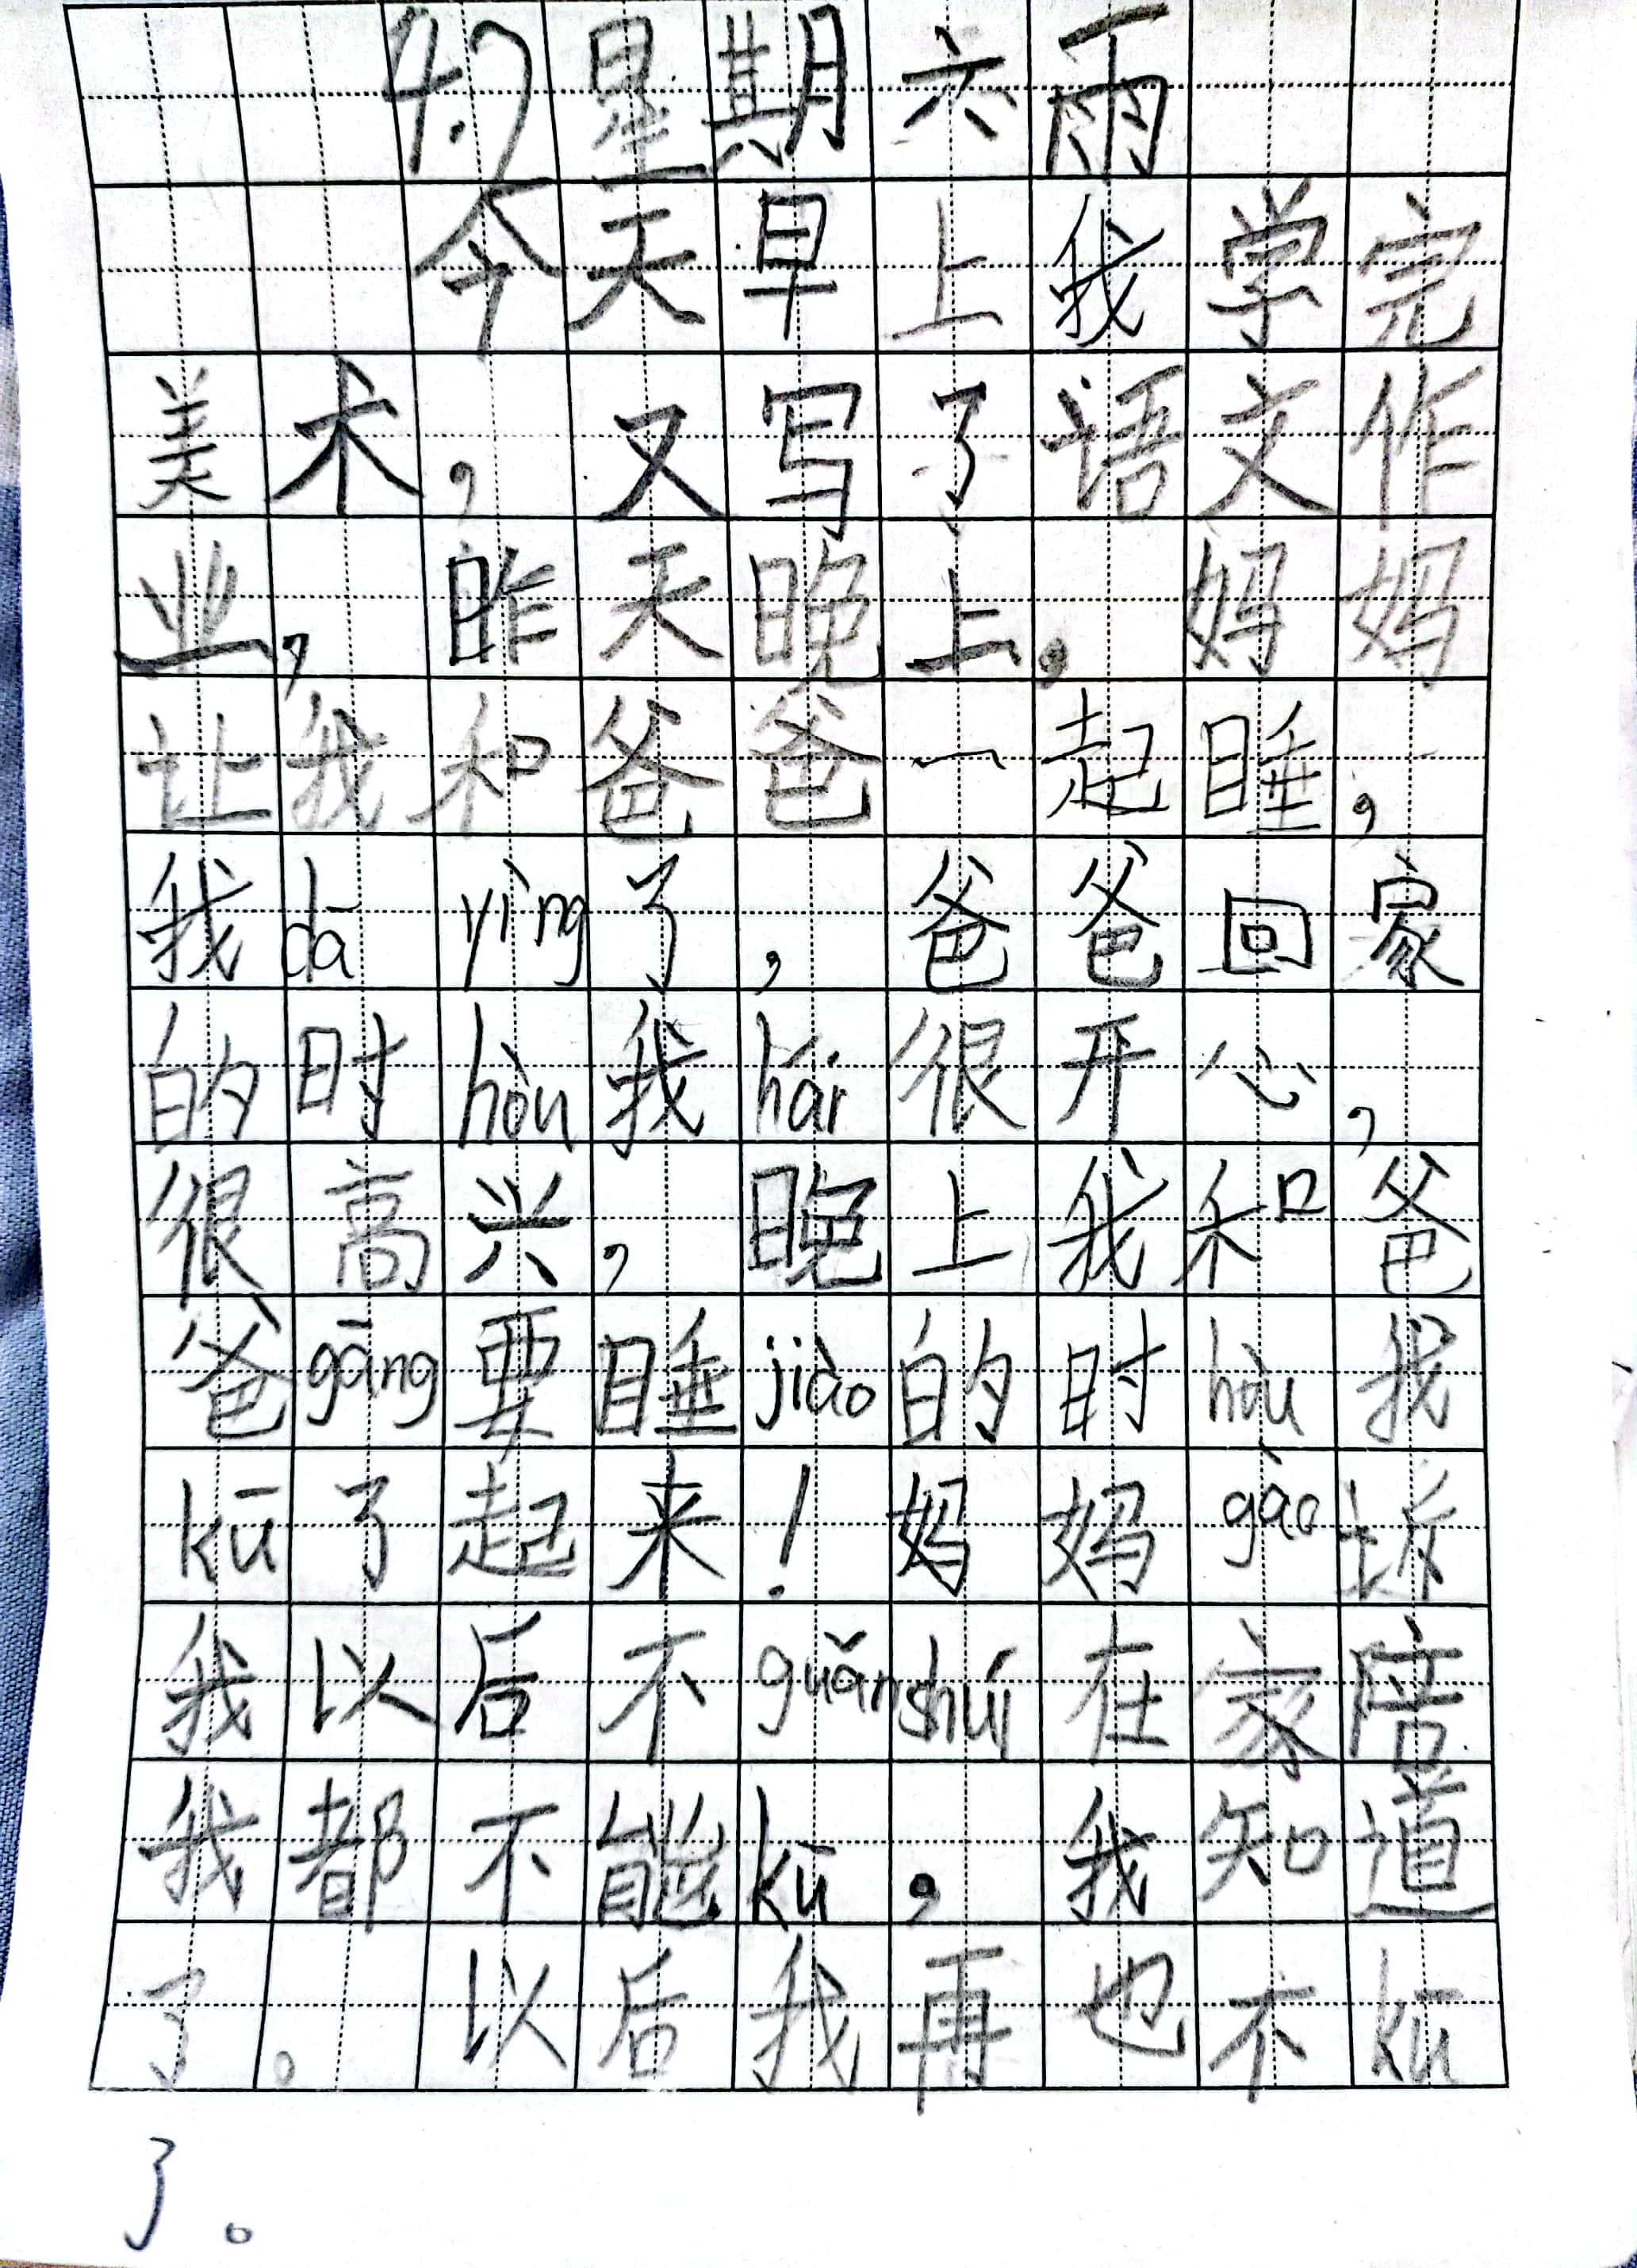 4.7星期六雨
今天早上我学完
美术，又写了语文作
业，昨天晚上。妈妈
让我和爸爸一起睡，
我dā yìng了，爸爸回家
的时hòu我hái很开心，
很高兴，晚上我和爸
爸gāng要睡jiào的时hòu我
kū了起来！妈妈gào诉
我以后不guǎnshuí在家陪
我都不能kū，我知道
了。以后我再也不kū
了。